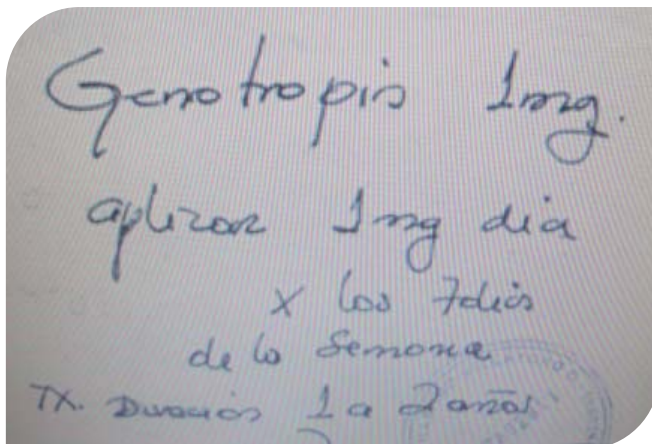 Genotropin 1mg.
aplicar 1mg dia
x los 7 dias
de la Semana
TX. Duración 1 a 2 años